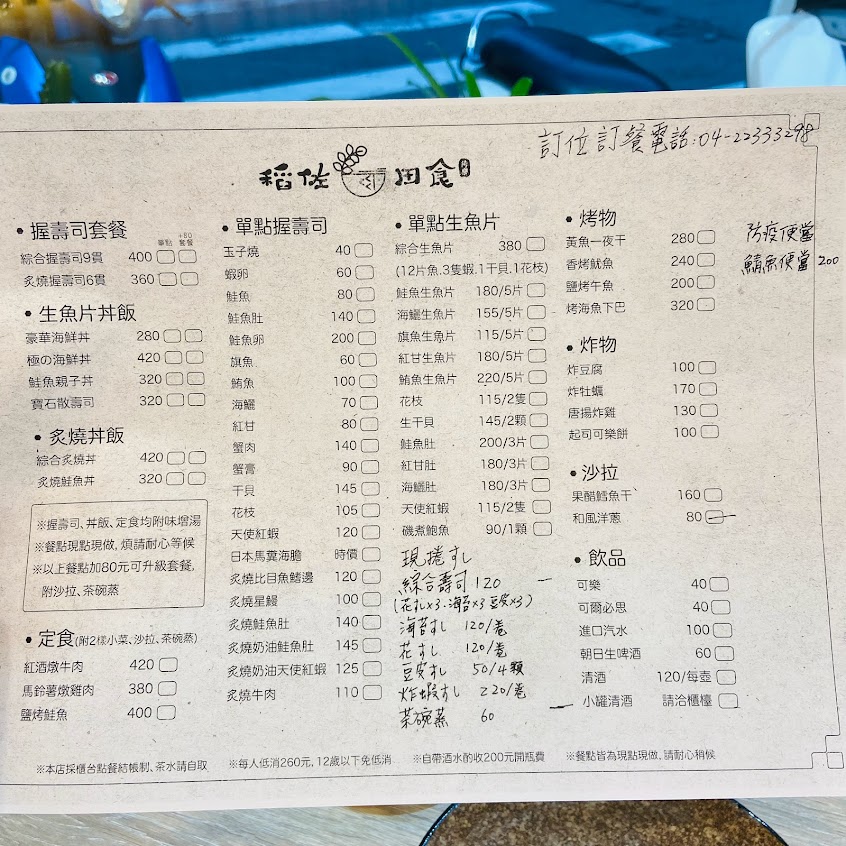 訂位訂餐電話:04-22333298
稻佐 田食
• 握壽司套餐
單點 +80套餐
綜合握壽司9貫 400
炙燒握壽司6貫 360
• 生魚片丼飯
豪華海鮮丼 280
極の海鮮丼 420
鮭魚親子丼 320
寶石散壽司 320
• 炙燒丼飯
綜合炙燒丼 420
炙燒鮭魚丼 320
※握壽司、丼飯、定食均附味增湯
※餐點現點現做, 煩請耐心等候
※以上餐點加80元可升級套餐,
附沙拉、茶碗蒸
• 定食(附2樣小菜、沙拉、茶碗蒸)
紅酒燉牛肉 420
馬鈴薯燉雞肉 380
鹽烤鮭魚 400
• 單點握壽司
玉子燒 40
蝦卵 60
鮭魚 80
鮭魚肚 140
鮭魚卵 200
旗魚 60
鮪魚 100
海鱺 70
紅甘 80
蟹肉 140
蟹膏 90
干貝 145
花枝 105
天使紅蝦 120
日本馬糞海膽 時價
炙燒比目魚鰭邊 120
炙燒星鰻 100
炙燒鮭魚肚 140
炙燒奶油鮭魚肚 145
炙燒奶油天使紅蝦 125
炙燒牛肉 110
• 單點生魚片
綜合生魚片 380
(12片魚.3隻蝦.1干貝.1花枝)
鮭魚生魚片 180/5片
海鱺生魚片 155/5片
旗魚生魚片 115/5片
紅甘生魚片 180/5片
鮪魚生魚片 220/5片
花枝 115/2隻
生干貝 145/2顆
鮭魚肚 200/3片
紅甘肚 180/3片
海鱺肚 180/3片
天使紅蝦 115/2隻
磯煮鮑魚 90/1顆
現捲すし
綜合壽司 120
(花丸×3.海苔×3豆皮×3)
海苔すし 120/卷
花すし 120/卷
豆皮すし 50/4顆
炸蝦すし 220/卷
茶碗蒸 60
• 烤物
黃魚一夜干 280
香烤魷魚 240
鹽烤午魚 200
烤海魚下巴 320
• 炸物
炸豆腐 100
炸牡蠣 170
唐揚炸雞 130
起司可樂餅 100
• 沙拉
果醋鱈魚干 160
和風洋蔥 80
• 飲品
可樂 40
可爾必思 40
進口汽水 100
朝日生啤酒 60
清酒 120/每壺
小罐清酒 請洽櫃檯
防疫便當
鯖魚便當 200
※本店採櫃台點餐結帳制、茶水請自取 ※每人低消260元, 12歲以下免低消 ※自帶酒水酌收200元開瓶費 ※餐點皆為現點現做, 請耐心稍候